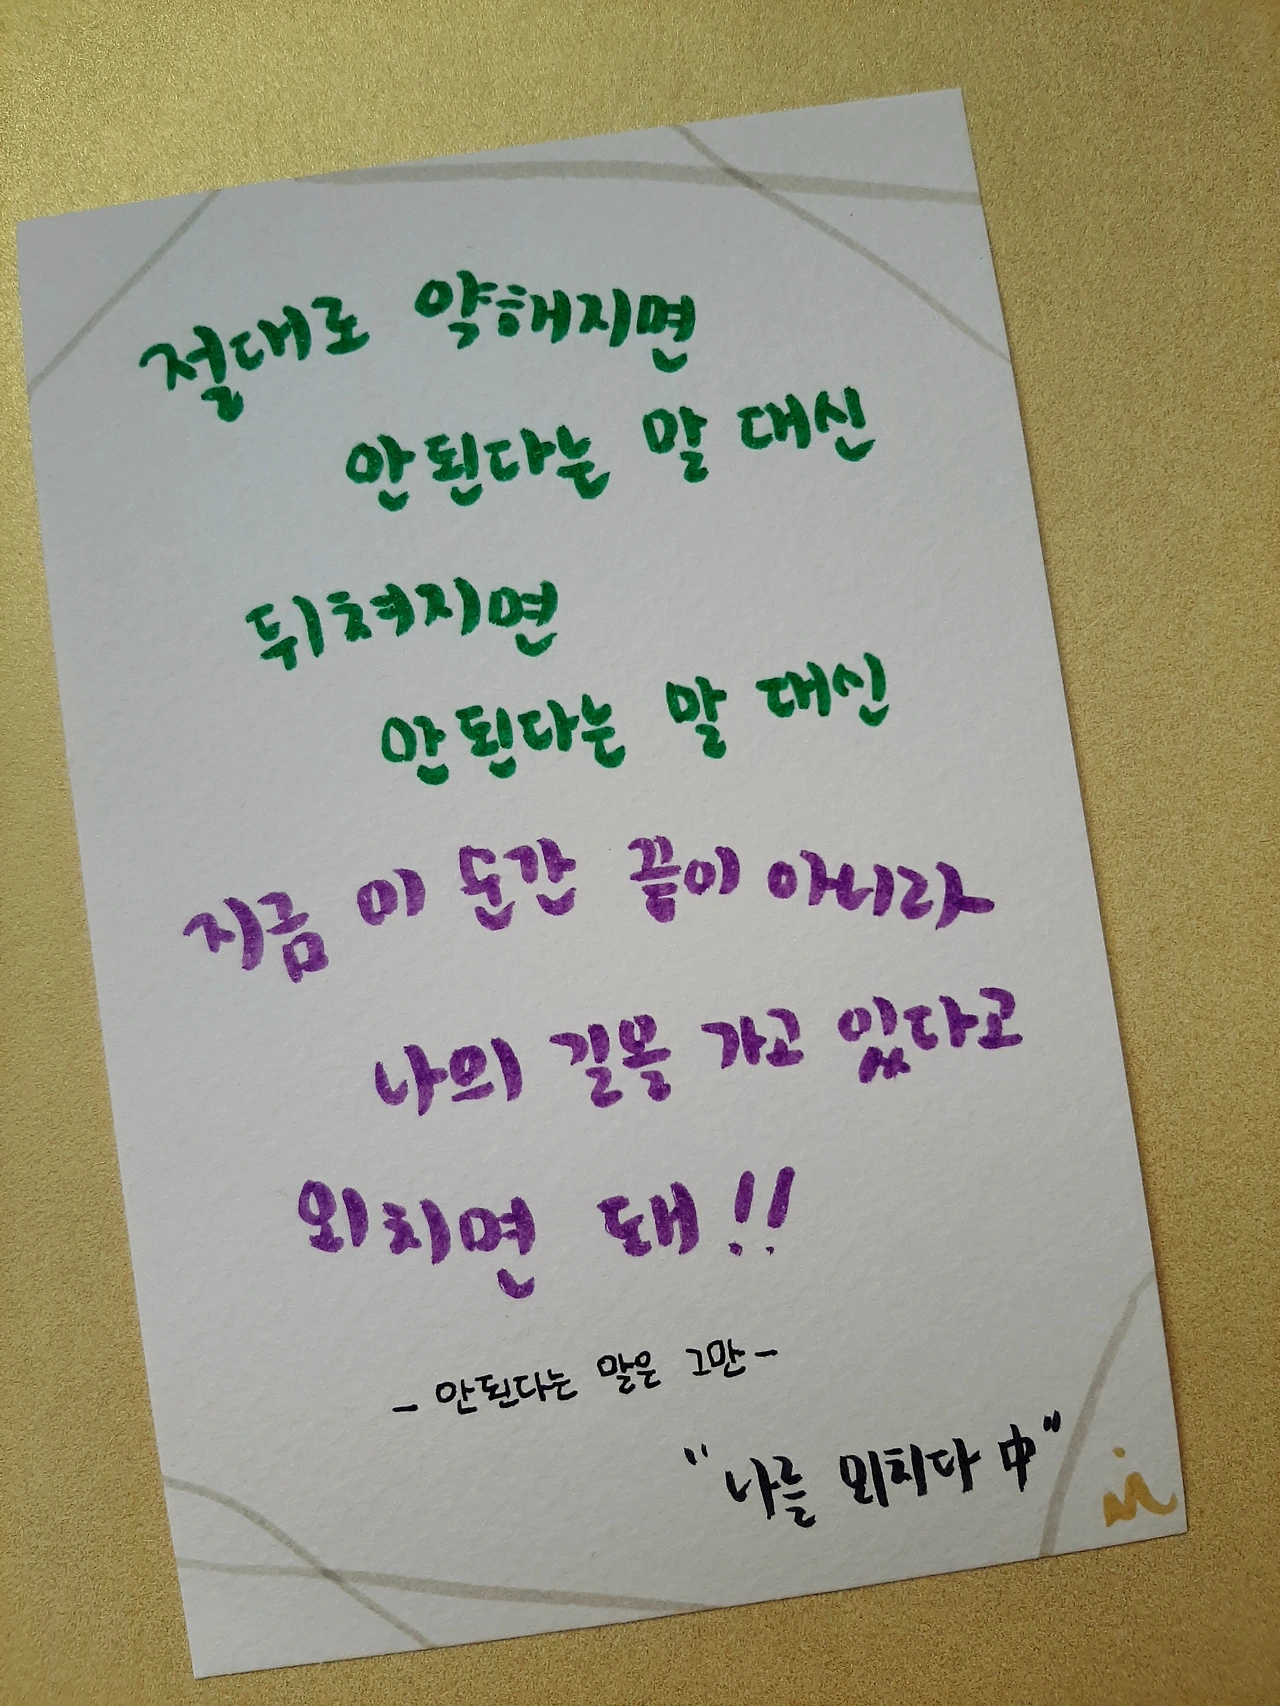 절대로 약해지면
안된다는 말 대신
뒤쳐지면
안된다는 말 대신
지금 이 순간 끝이 아니라
나의 길을 가고 있다고
외치면 돼!!
- 안된다는 말은 그만 -
"나를 외치다 中"